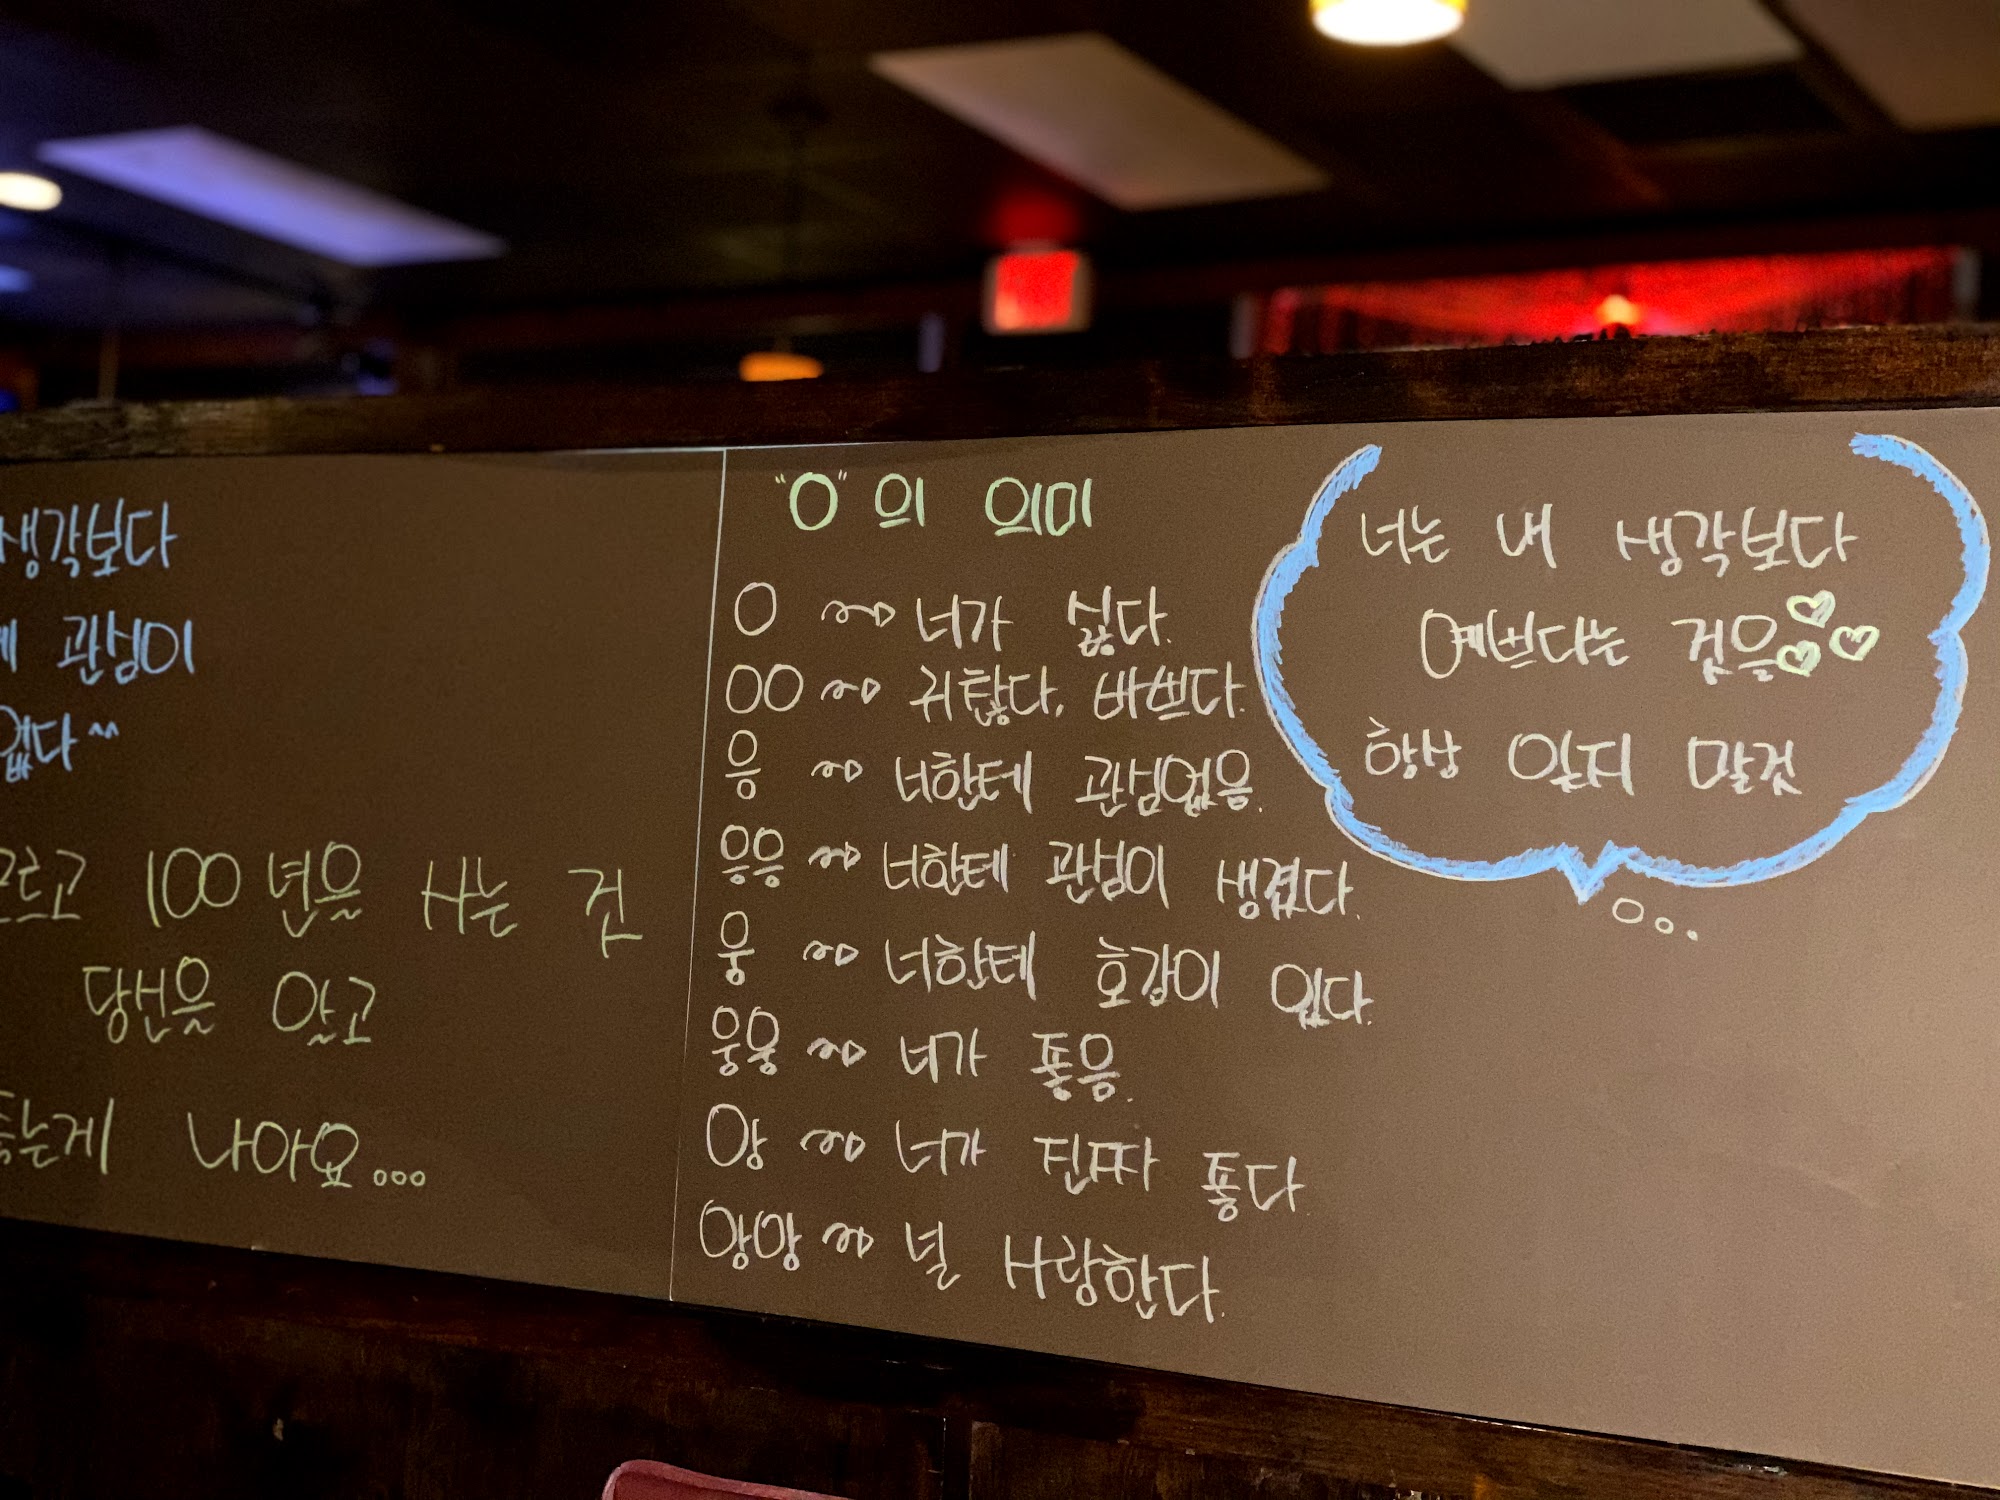 생각보다
관심이
없다^^
모르고 100년을 사는 것
당신을 알고
죽는게 나아요...
"ㅇ"의 의미
ㅇ ~> 너가 싫다.
ㅇㅇ ~> 귀찮다. 바쁘다.
응 ~> 너한테 관심없음.
응응 ~> 너한테 관심이 생겼다.
웅 ~> 너한테 호감이 있다.
웅웅 ~> 너가 좋음.
앙 ~> 너가 진짜 좋다
앙앙 ~> 널 사랑한다.
너는 내 생각보다
예쁘다는 것을♡♡♡
항상 잊지 말것